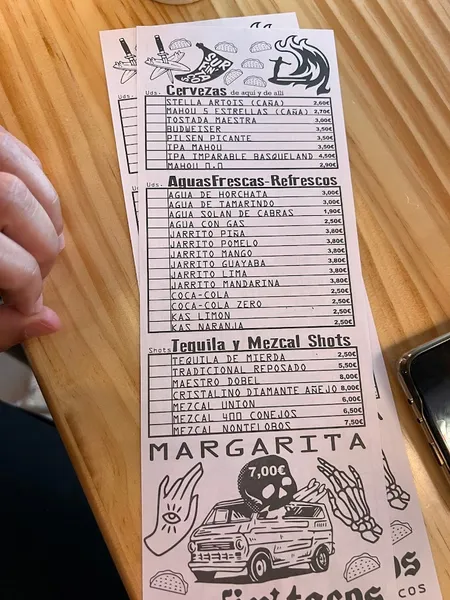 Uds. Cervezas de aqui y de alli
STELLA ARTOIS (CAÑA) 2,60€
MAHOU 5 ESTRELLAS (CAÑA) 2,70€
TOSTADA MAESTRA 3,00€
BUDWEISER 3,50€
PILSEN PICANTE 3,50€
IPA MAHOU 3,50€
IPA IMPARABLE BASQUELAND 4,50€
MAHOU 0,0 2,90€
Uds. AguasFrescas-Refrescos
AGUA DE HORCHATA 3,00€
AGUA DE TAMARINDO 3,00€
AGUA SOLAN DE CABRAS 1,90€
AGUA CON GAS 2,50€
JARRITO PIÑA 3,80€
JARRITO POMELO 3,80€
JARRITO MANGO 3,80€
JARRITO GUAYABA 3,80€
JARRITO LIMA 3,80€
JARRITO MANDARINA 3,80€
COCA-COLA 2,50€
COCA-COLA ZERO 2,50€
KAS LIMON 2,50€
KAS NARANJA 2,50€
Shots Tequila y Mezcal Shots
TEQUILA DE MIERDA 2,50€
TRADICIONAL REPOSADO 5,50€
MAESTRO DOBEL 8,00€
CRISTALINO DIAMANTE AÑEJO 8,00€
MEZCAL UNION 6,00€
MEZCAL 400 CONEJOS 6,50€
MEZCAL NONTELOBOS 7,50€
MARGARITA
7,00€
tacos
os
COS